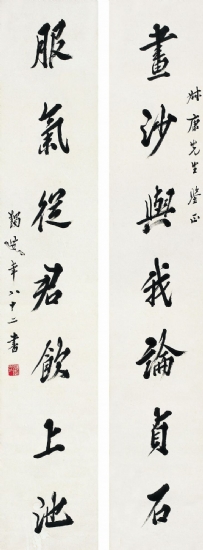 康先生鑒正
畫沙與我論貞石
服氣從君飲上池
年八十二書